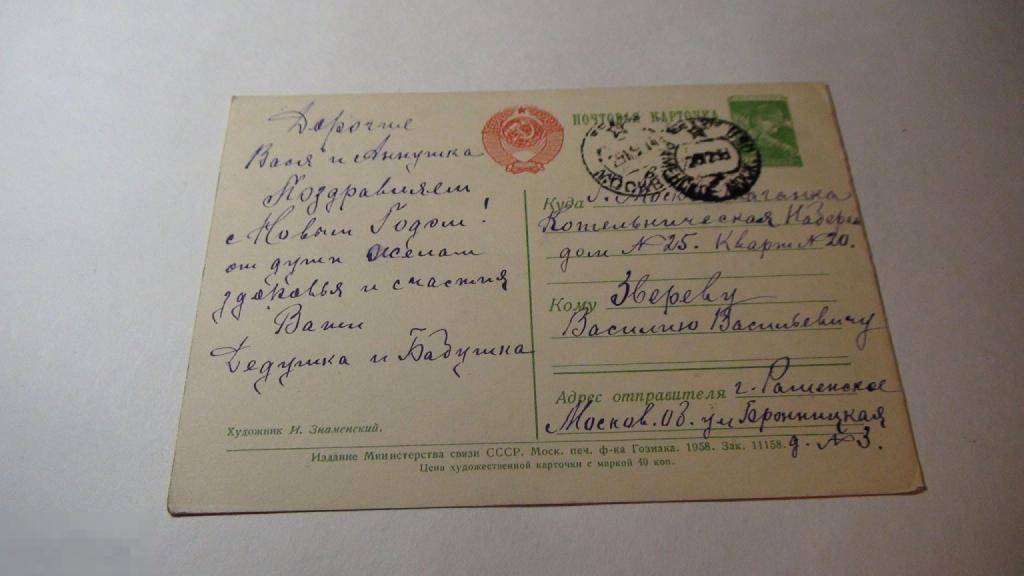 Дорогие
Вася и Аннушка
Поздравляем
с Новым Годом!
от души желаем
здоровья и счастия
Ваши
Дедушка и Бабушка
Художник И. Знаменский.
ПОЧТОВАЯ КАРТОЧКА
МОСКВА
Куда г. Москва Таганка
Котельническая Набереж
дом №25. Кварт №20.
Кому Звереву
Василию Васильевичу
Адрес отправителя г. Раменское
Москов. об. ул Бронницкая
д. №3.
Издание Министерства связи СССР. Моск. печ. ф-ка Гознака. 1958. Зак. 11158.
Цена художественной карточки с маркой 40 коп.